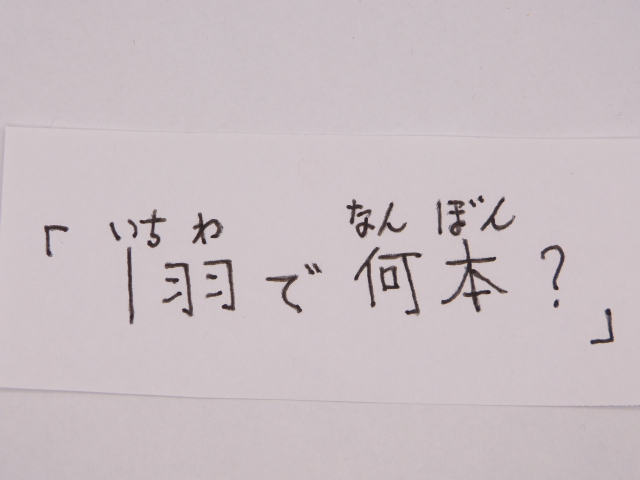 いちわ なんぼん
「1羽で何本?」